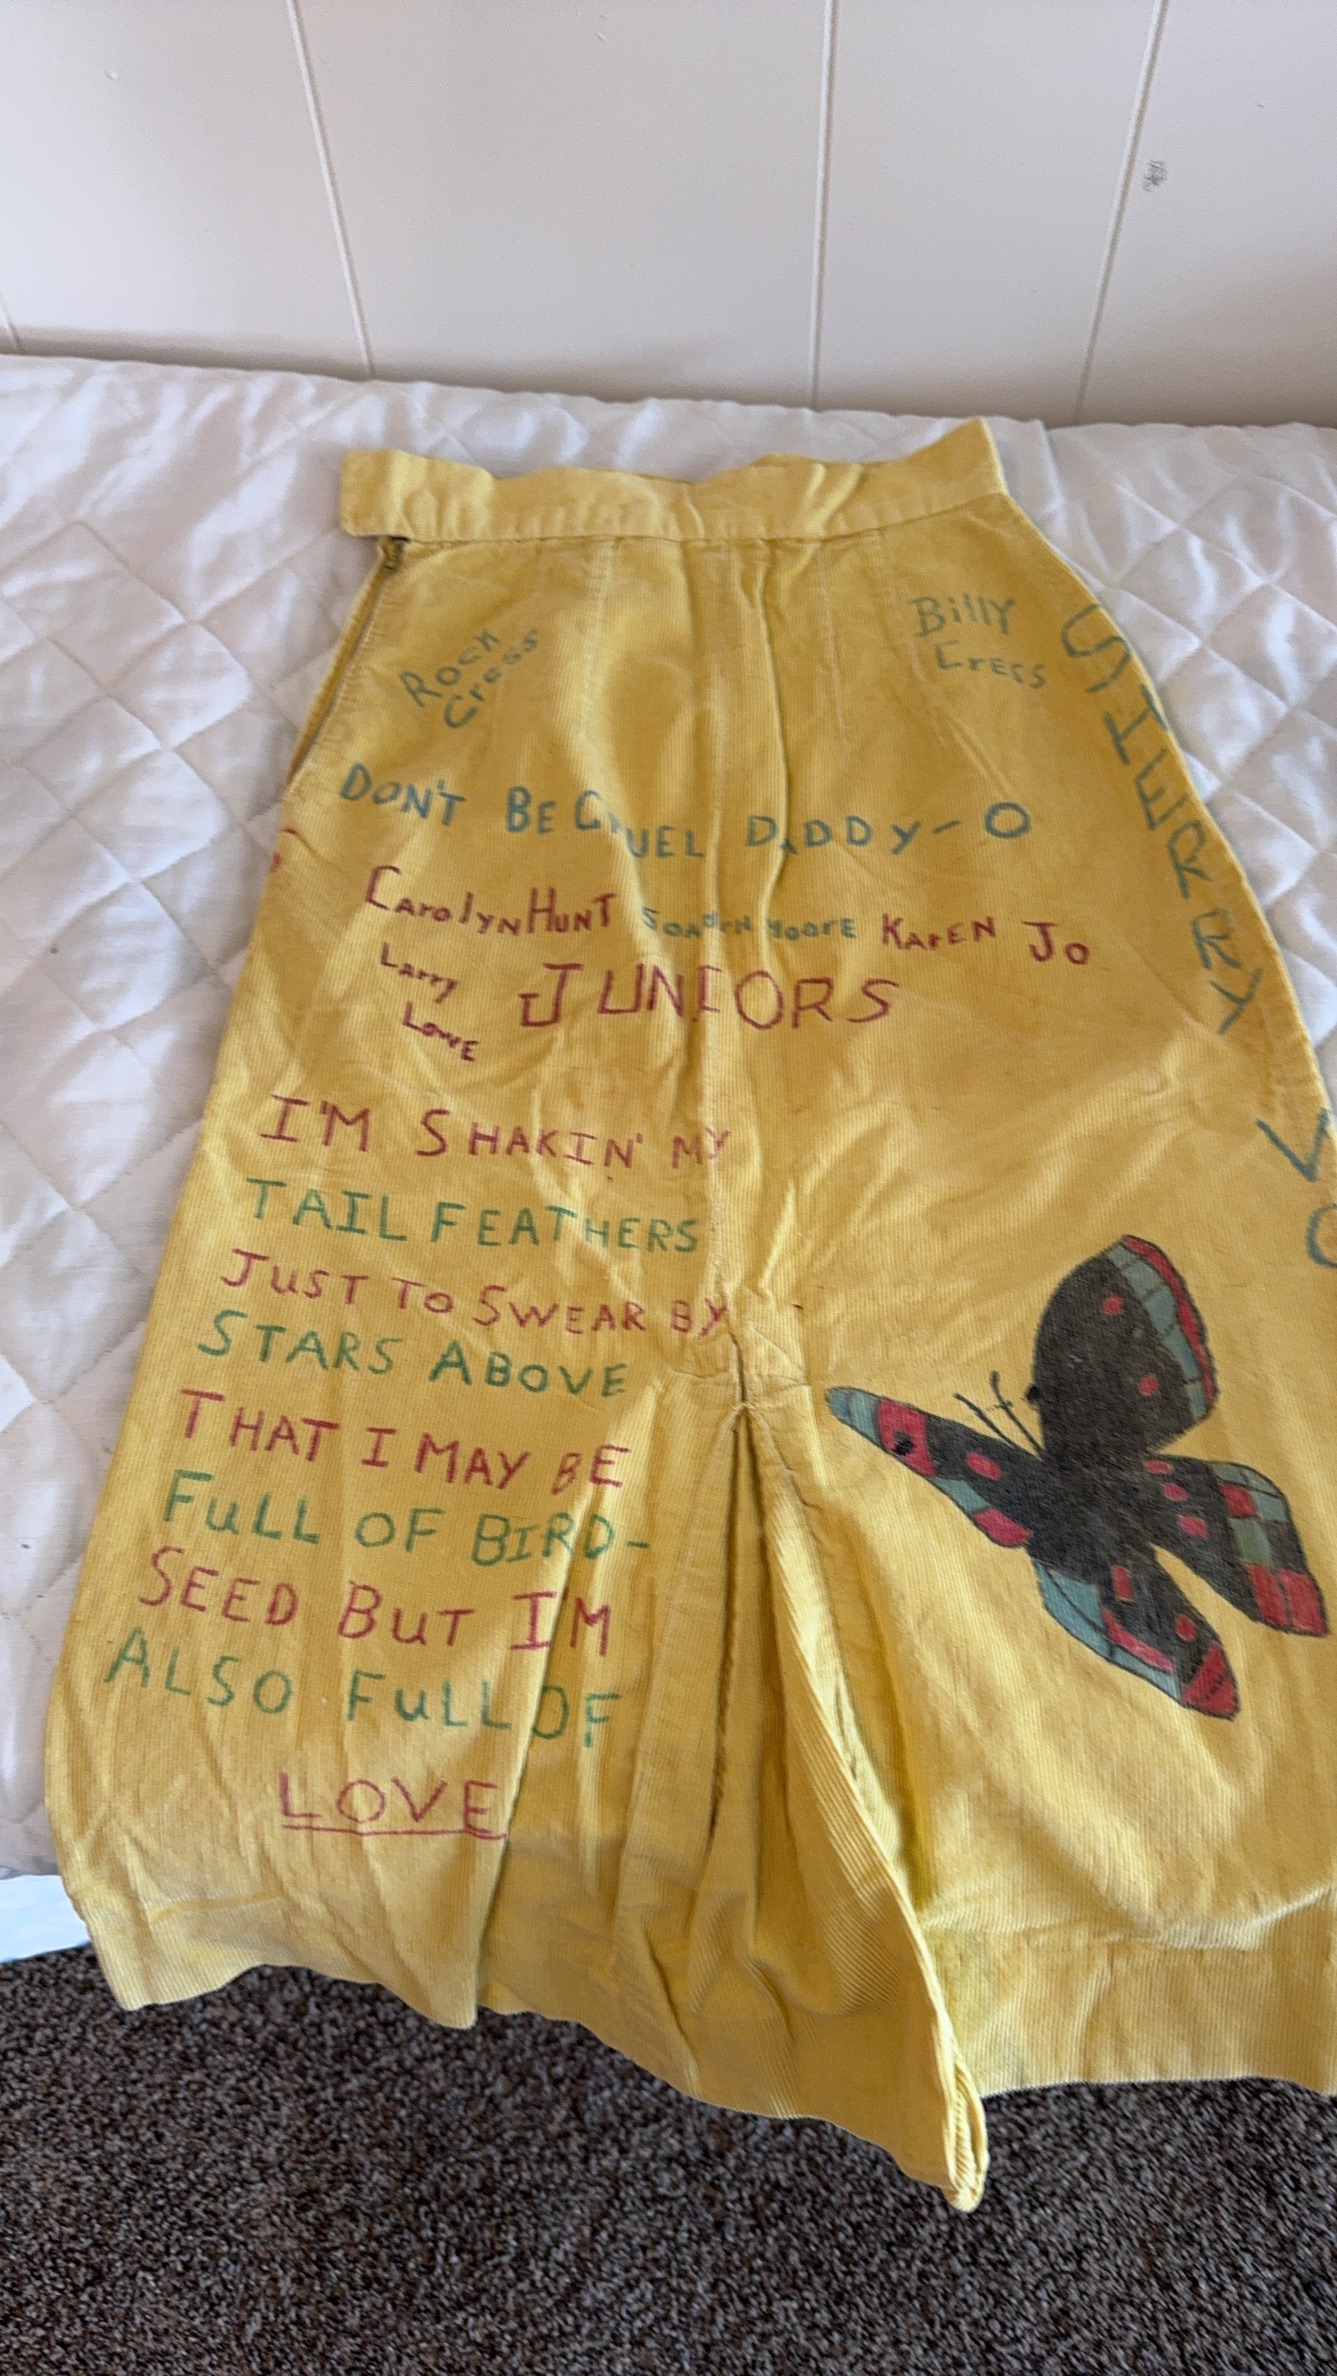 Rock
Cress
Billy
Cress
SHERRY
DON'T BE CRUEL DADDY-O
Carolyn Hunt Moore Karen Jo
Larry
Lowe
JUNIORS
I'M SHAKIN' MY
TAIL FEATHERS
JUST TO SWEAR BY
STARS ABOVE
THAT I MAY BE
FULL OF BIRD-
SEED BUT I'M
ALSO FULL OF
LOVE